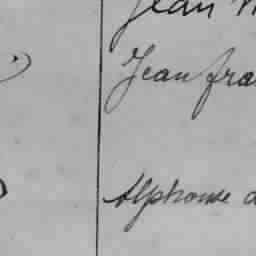 Jean
Jean fra
Alphonse